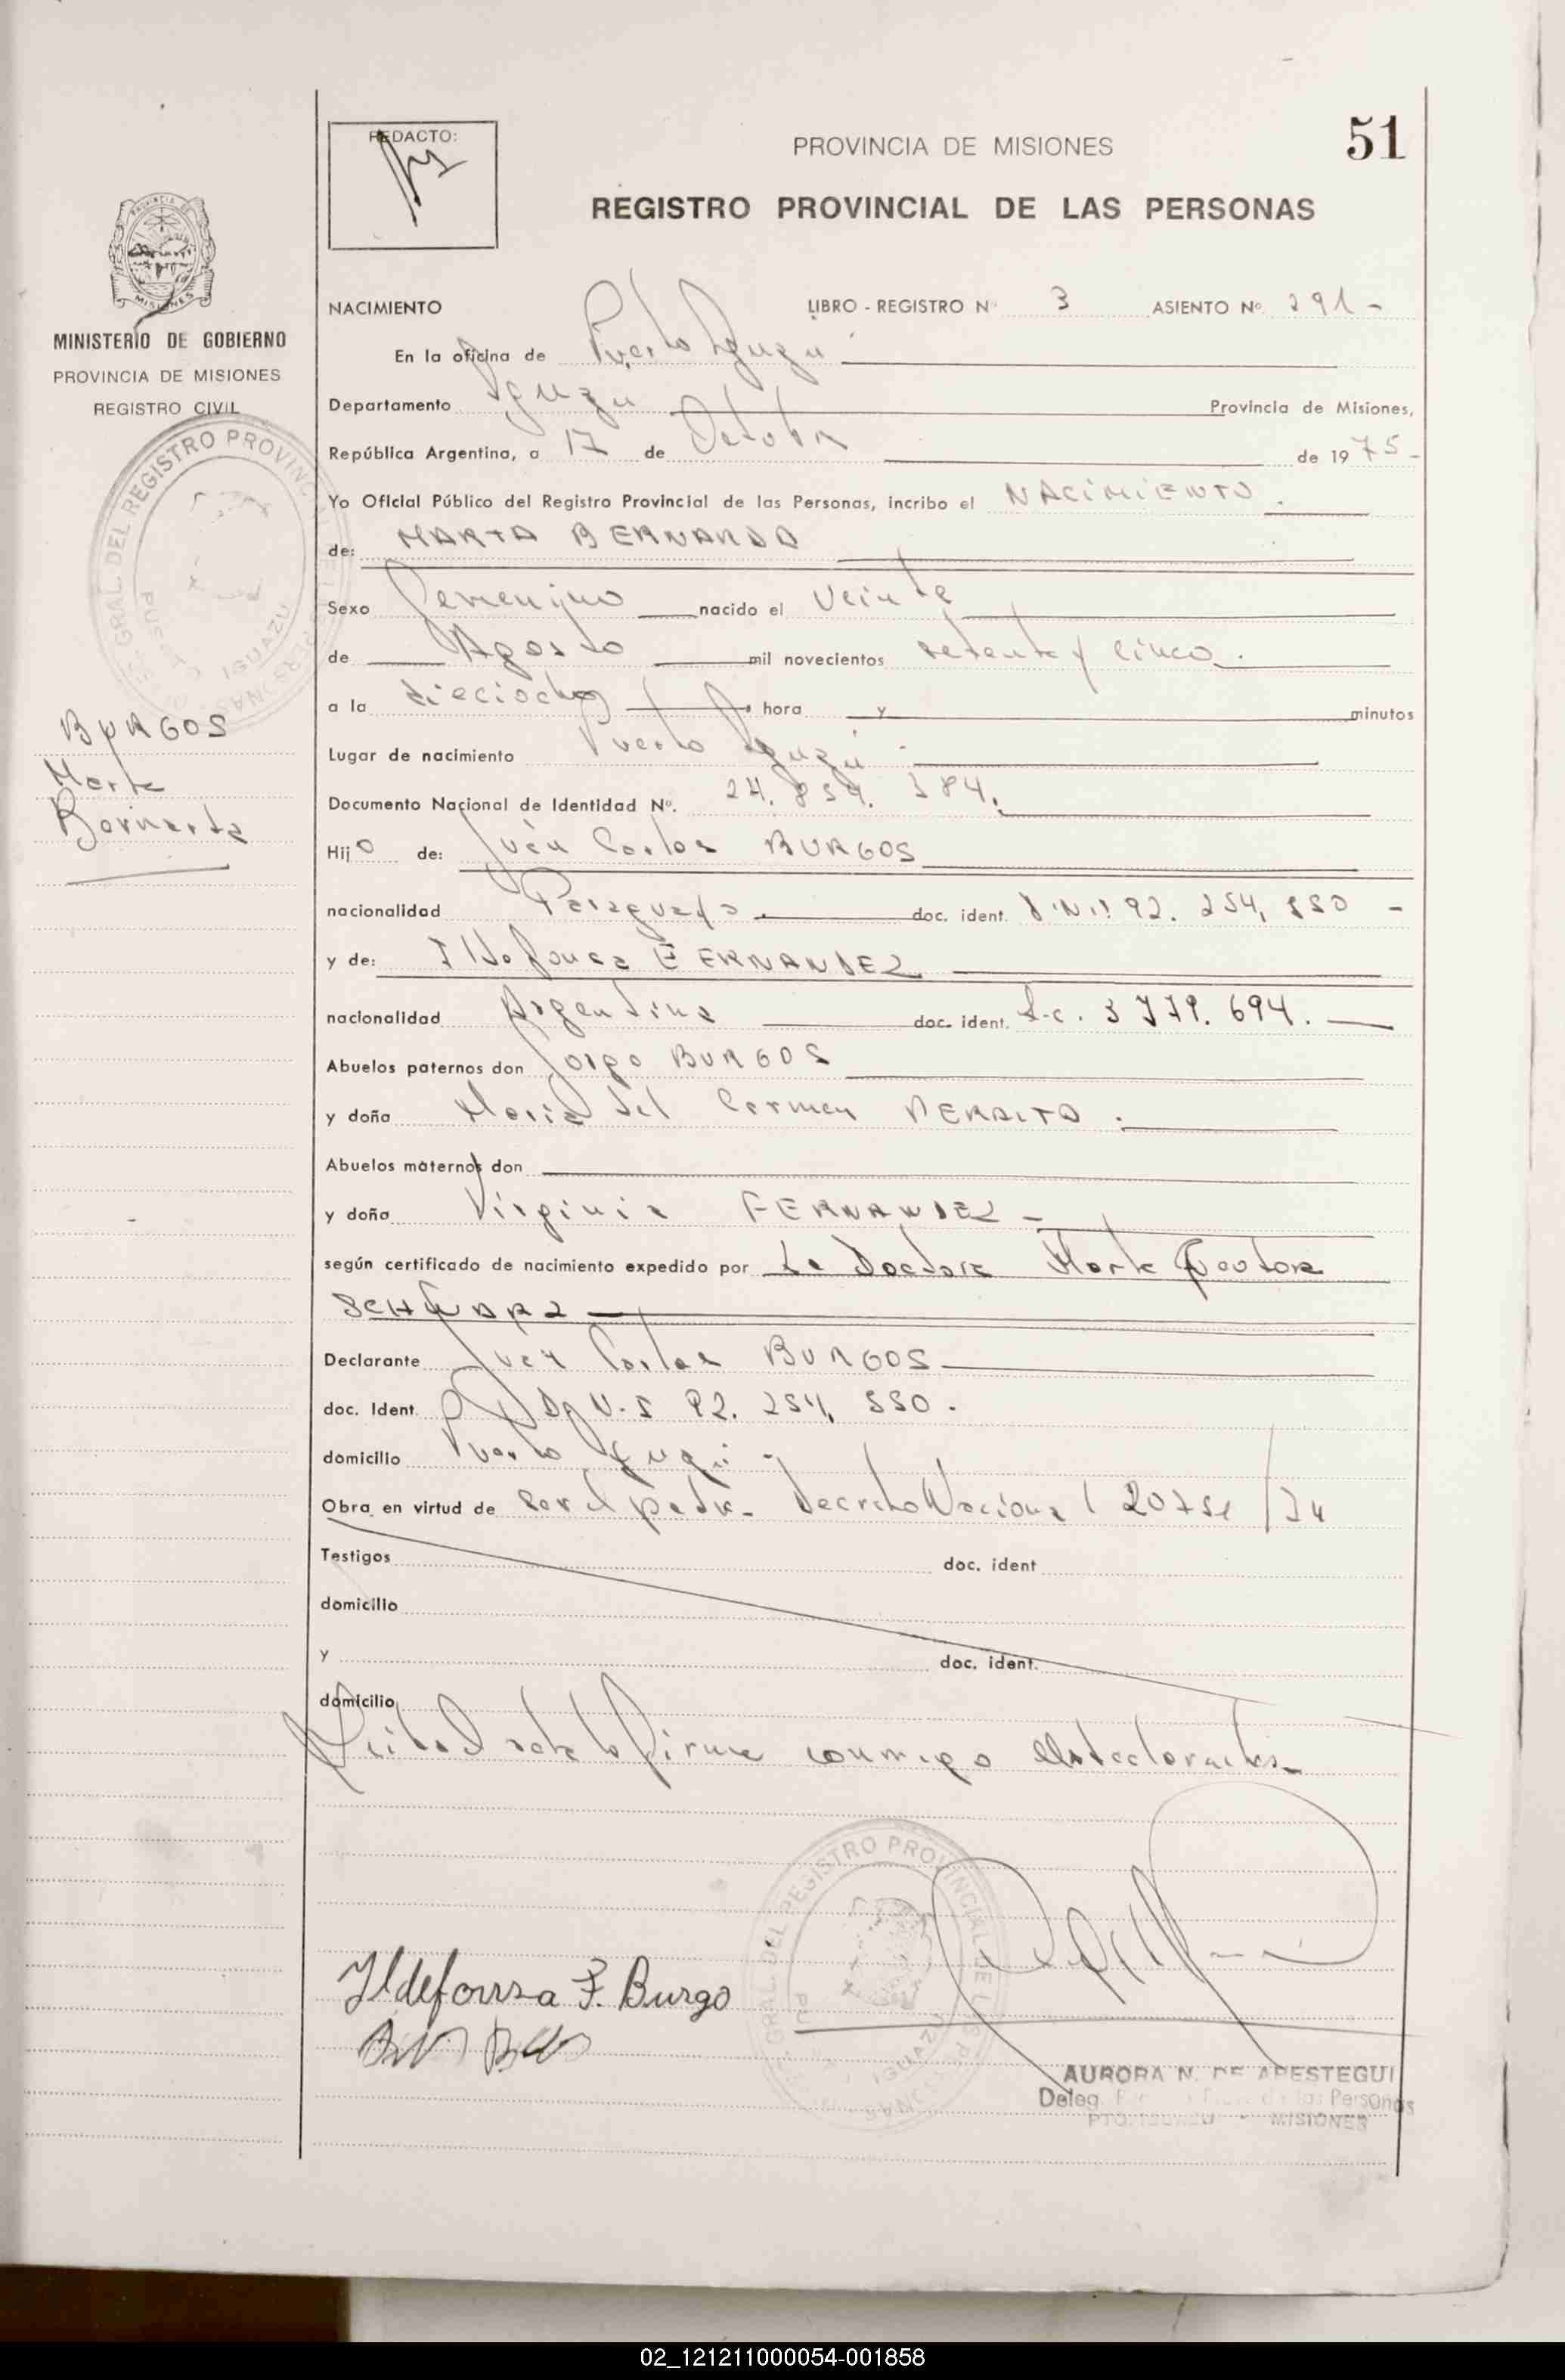 REDACTO:
PROVINCIA DE MISIONES
51
REGISTRO PROVINCIAL DE LAS PERSONAS
MISIONES
MINISTERIO DE GOBIERNO
PROVINCIA DE MISIONES
REGISTRO CIVIL
NACIMIENTO LIBRO - REGISTRO Nº 3 ASIENTO Nº. 291 -
En la oficina de Puerto Iguazú
Departamento Iguazú Provincia de Misiones,
República Argentina, a 17 de Octubre de 1975 -
Yo Oficial Público del Registro Provincial de las Personas, incribo el NACIMIENTO.
de: MARTA BERNARDA
Sexo Femenino nacido el Veinte
de Agosto mil novecientos setenta y cinco.
a la dieciocho hora y minutos
Lugar de nacimiento Puerto Iguazú.
Documento Nacional de Identidad Nº. 24. 859. 384.
BURGOS
Marta
Bernarda
Hijo de: Juan Carlos BURGOS
nacionalidad Paraguaya doc. ident. D.N.I. 92. 254, 550 -
y de: Ildefonsa FERNANDEZ
nacionalidad Argentina doc. ident. L.C. 3 779. 694.
Abuelos paternos don Jorge BURGOS
y doña Maria del Carmen PERALTA.
Abuelos maternos don
y doña Virginia FERNANDEZ -
según certificado de nacimiento expedido por La Doctora Marta
SCHWARZ
Declarante Juan Carlos BURGOS
doc. Ident. D.N.I 92. 254, 550.
domicilio Puerto Iguazú -
Obra en virtud de ser el padre - Decreto Nacional 20751/74
Testigos doc. ident
domicilio
y doc. ident.
domicilio
Leida el acta la firma conmigo
Ildefonsa F. Burgo
AURORA N. DE APESTEGUI
Deleg. de las Personas
PTO. IGUAZU - MISIONES
02_121211000054-001858